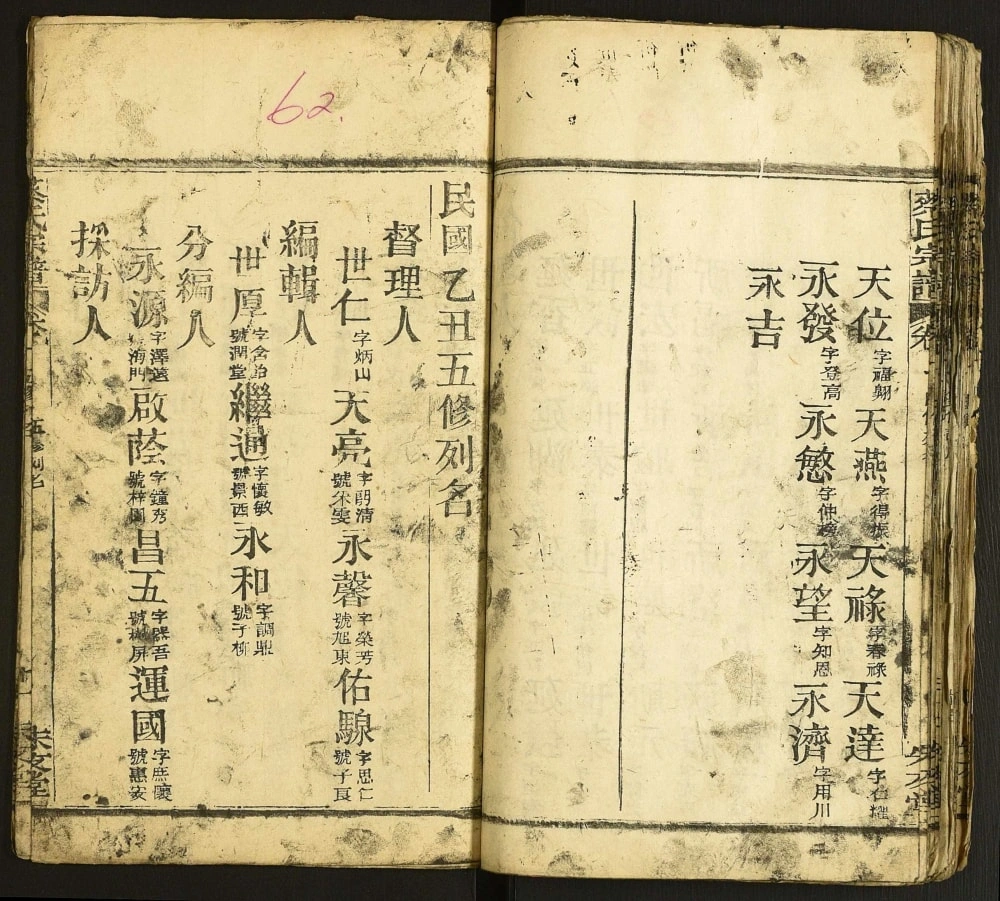 蔡氏宗譜
天位 字福翱 天燕 字得振 天祿 字春祿 天達
永發 字登高 永慜 字仲 永望 字知恩 永濟 字用川
永吉
62.
民國乙丑五修列名
督理人
世仁 字炳山 天亮 字朗清 號米雯 永馨 字榮芳 號旭東 佑騄 字思仁 號子良
編輯人
世厚 字含貽 號潤堂 繼通 字懷敏 號景西 永和 字調鼎 號子柳
分編人
永源 字澤遠 號海門 啟蔭 字鐘秀 號梓園 昌五 字 吾 號 屏 運國 字庶懷 號惠安
採訪人
蔡氏宗譜 卷 五修列名